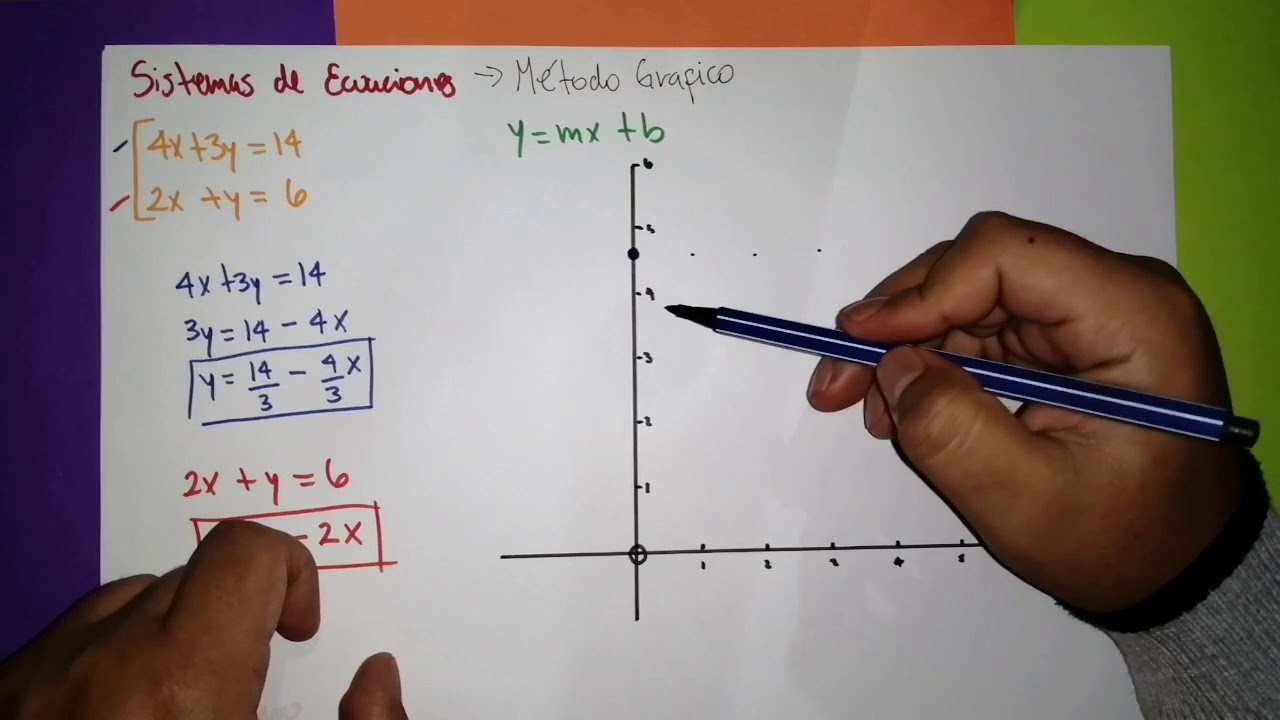 Sistemas de Ecuaciones → Método Grafico
4x+3y=14
2x +y= 6
y=mx+b
4x+3y=14
3y=14-4x
y=14/3-4/3x
2x+y=6
-2x
6
5
4
3
2
1
1 2 3 4 5